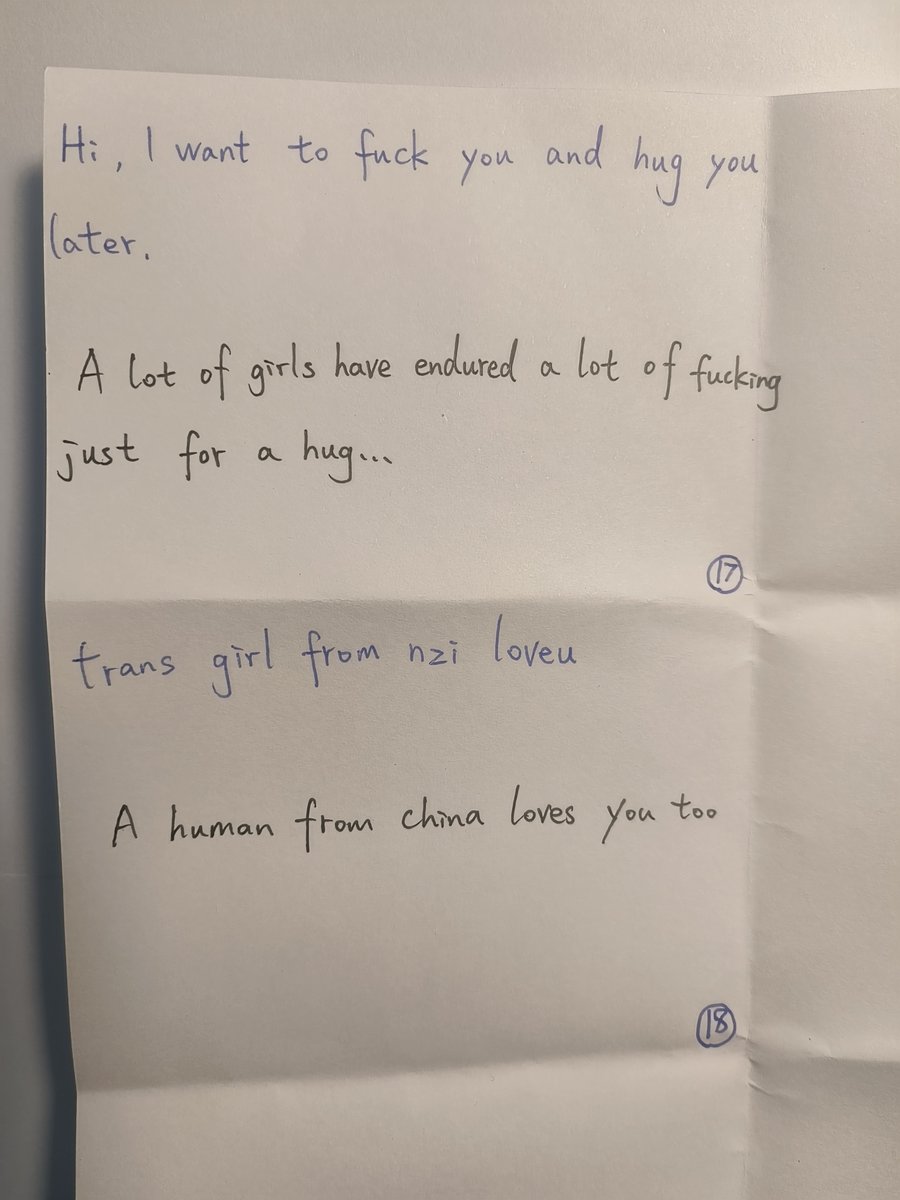 Hi, I want to fuck you and hug you
later.
A lot of girls have endured a lot of fucking
just for a hug...
17
trans girl from nzi loveu
A human from china loves you too
18